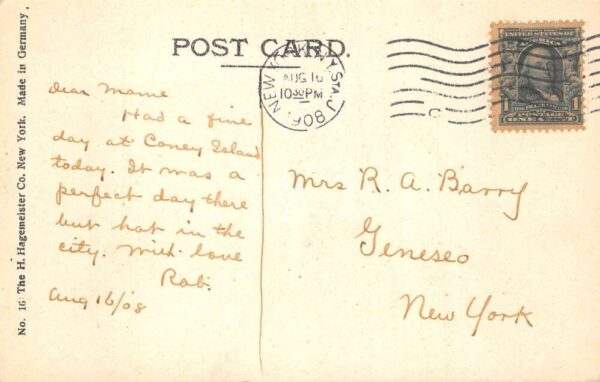 POST CARD.
No. 16 The H. Hagemeister Co. New York. Made in Germany.
NEW YORK, N.Y. STA. J
AUG 16
10 30 PM
'08
UNITED STATES OF AMERICA
1 1
POSTAGE
ONE CENT
Dear Mame
Had a fine
day at Coney Island
today. It was a
perfect day there
but hot in the
city. With love
Rob.
Aug 16/08
Mrs R. A. Barry
Geneseo
New York